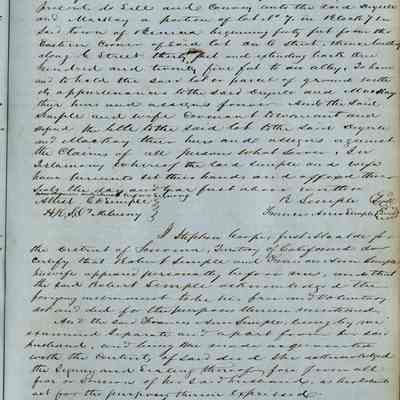 presents do Sell and Convey unto the said Seyrie
and Mackay a portion of Lot No 7. in Block 7 in
Said town of Benicia beginning fifty feet from the
Eastern Corner of said lot on C Street, thence
along C Street thirty feet and extending back One
hundred and twenty five feet to an alley. To have
and to hold the said lot or parcel of ground with
its appurtenances to the said and Mackay
their heirs and assigns forever And the said
Semple and wife Covenant to warrant and
defend the title to the said lot to the said
and Mackay their heirs and assigns against
the Claims of all persons whatsoever. In
testimony whereof the said Semple and wife
have hereunto set their hands and affixed their
Seals the day and year first above written
R Semple Seal
Frances Ann Semple Seal
I Stephen Cooper, first Alcalde for
the district of Sonoma, Territory of California do
Certify that Robert Semple and Frances Ann Semple
his wife appeared personally before me, and that
the said Robert Semple acknowledged the
foregoing instrument to be his free and voluntary
act and deed for the purposes therein mentioned.
And the said Frances Ann Semple being by me
examined Separate and apart from her said
husband, and being made acquainted
with the Contents of said deed She acknowledged
the Signing and Sealing thereof, free from all
fear or Coercion of her said husband, as her
act for the purposes therein expressed